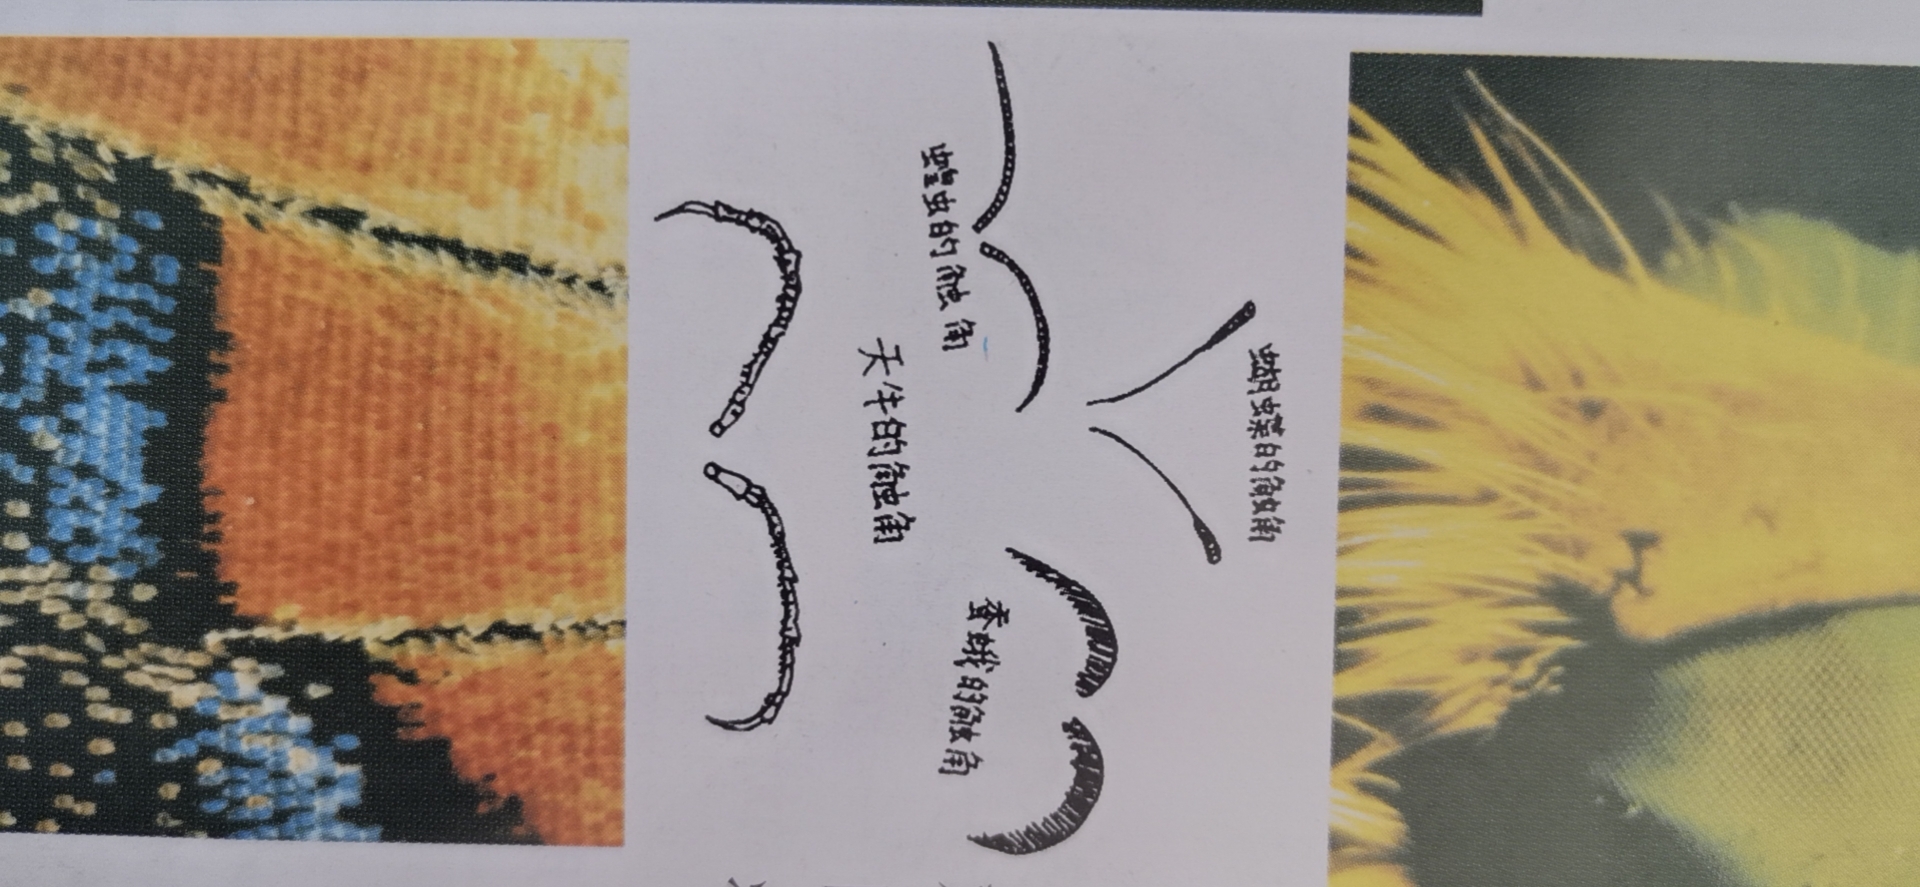 蝴蝶的触角
蝗虫的触角
蚕蛾的触角
天牛的触角